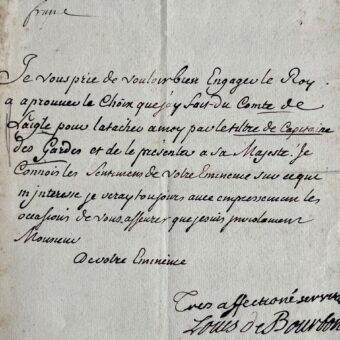 franc
Je vous prie de vouloir bien Engager le Roy
a aprouver le Choix que j'ay fait du Comte de
Laigle pour l'atacher a moy par le tiltre de Capitaine
des Gardes et de le presenter a sa Majesté. Je
Connois les Sentimens de Votre Eminence sur ce qui
m'interesse je seray toujours avec empressement les
occasions de vous assurer que je suis
Monsieur
De votre Eminence
Tres affectioné servite
Louis de Bourbon